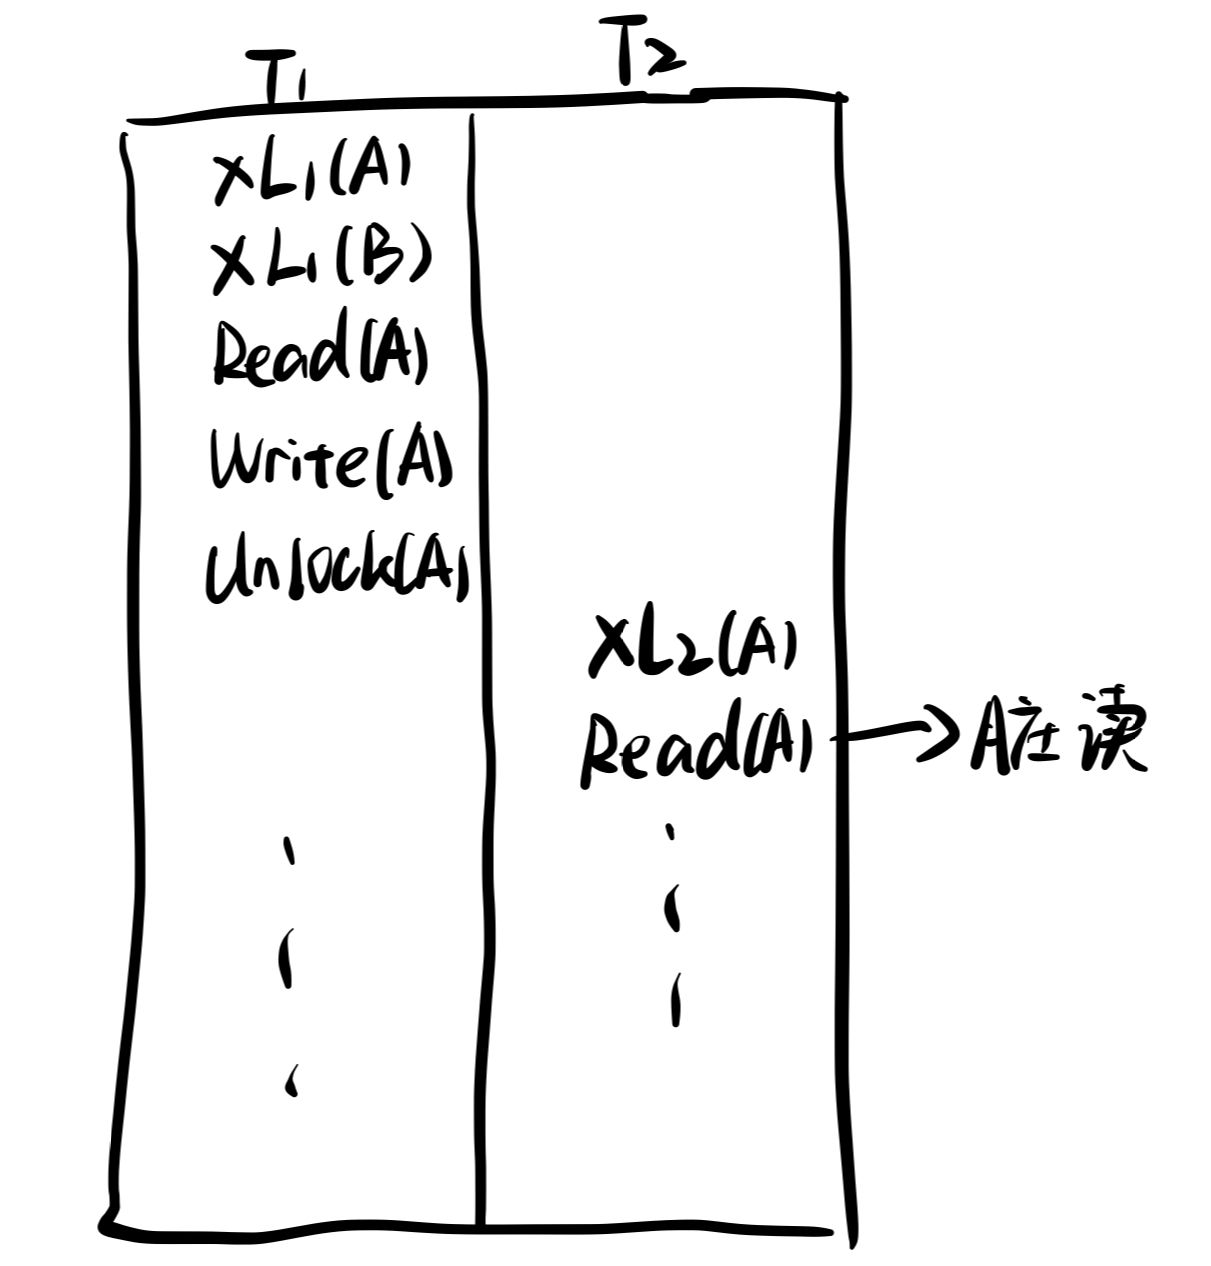 T1 T2
XL1(A)
XL1(B)
Read(A)
Write(A)
Unlock(A)
XL2(A)
Read(A) → A脏读